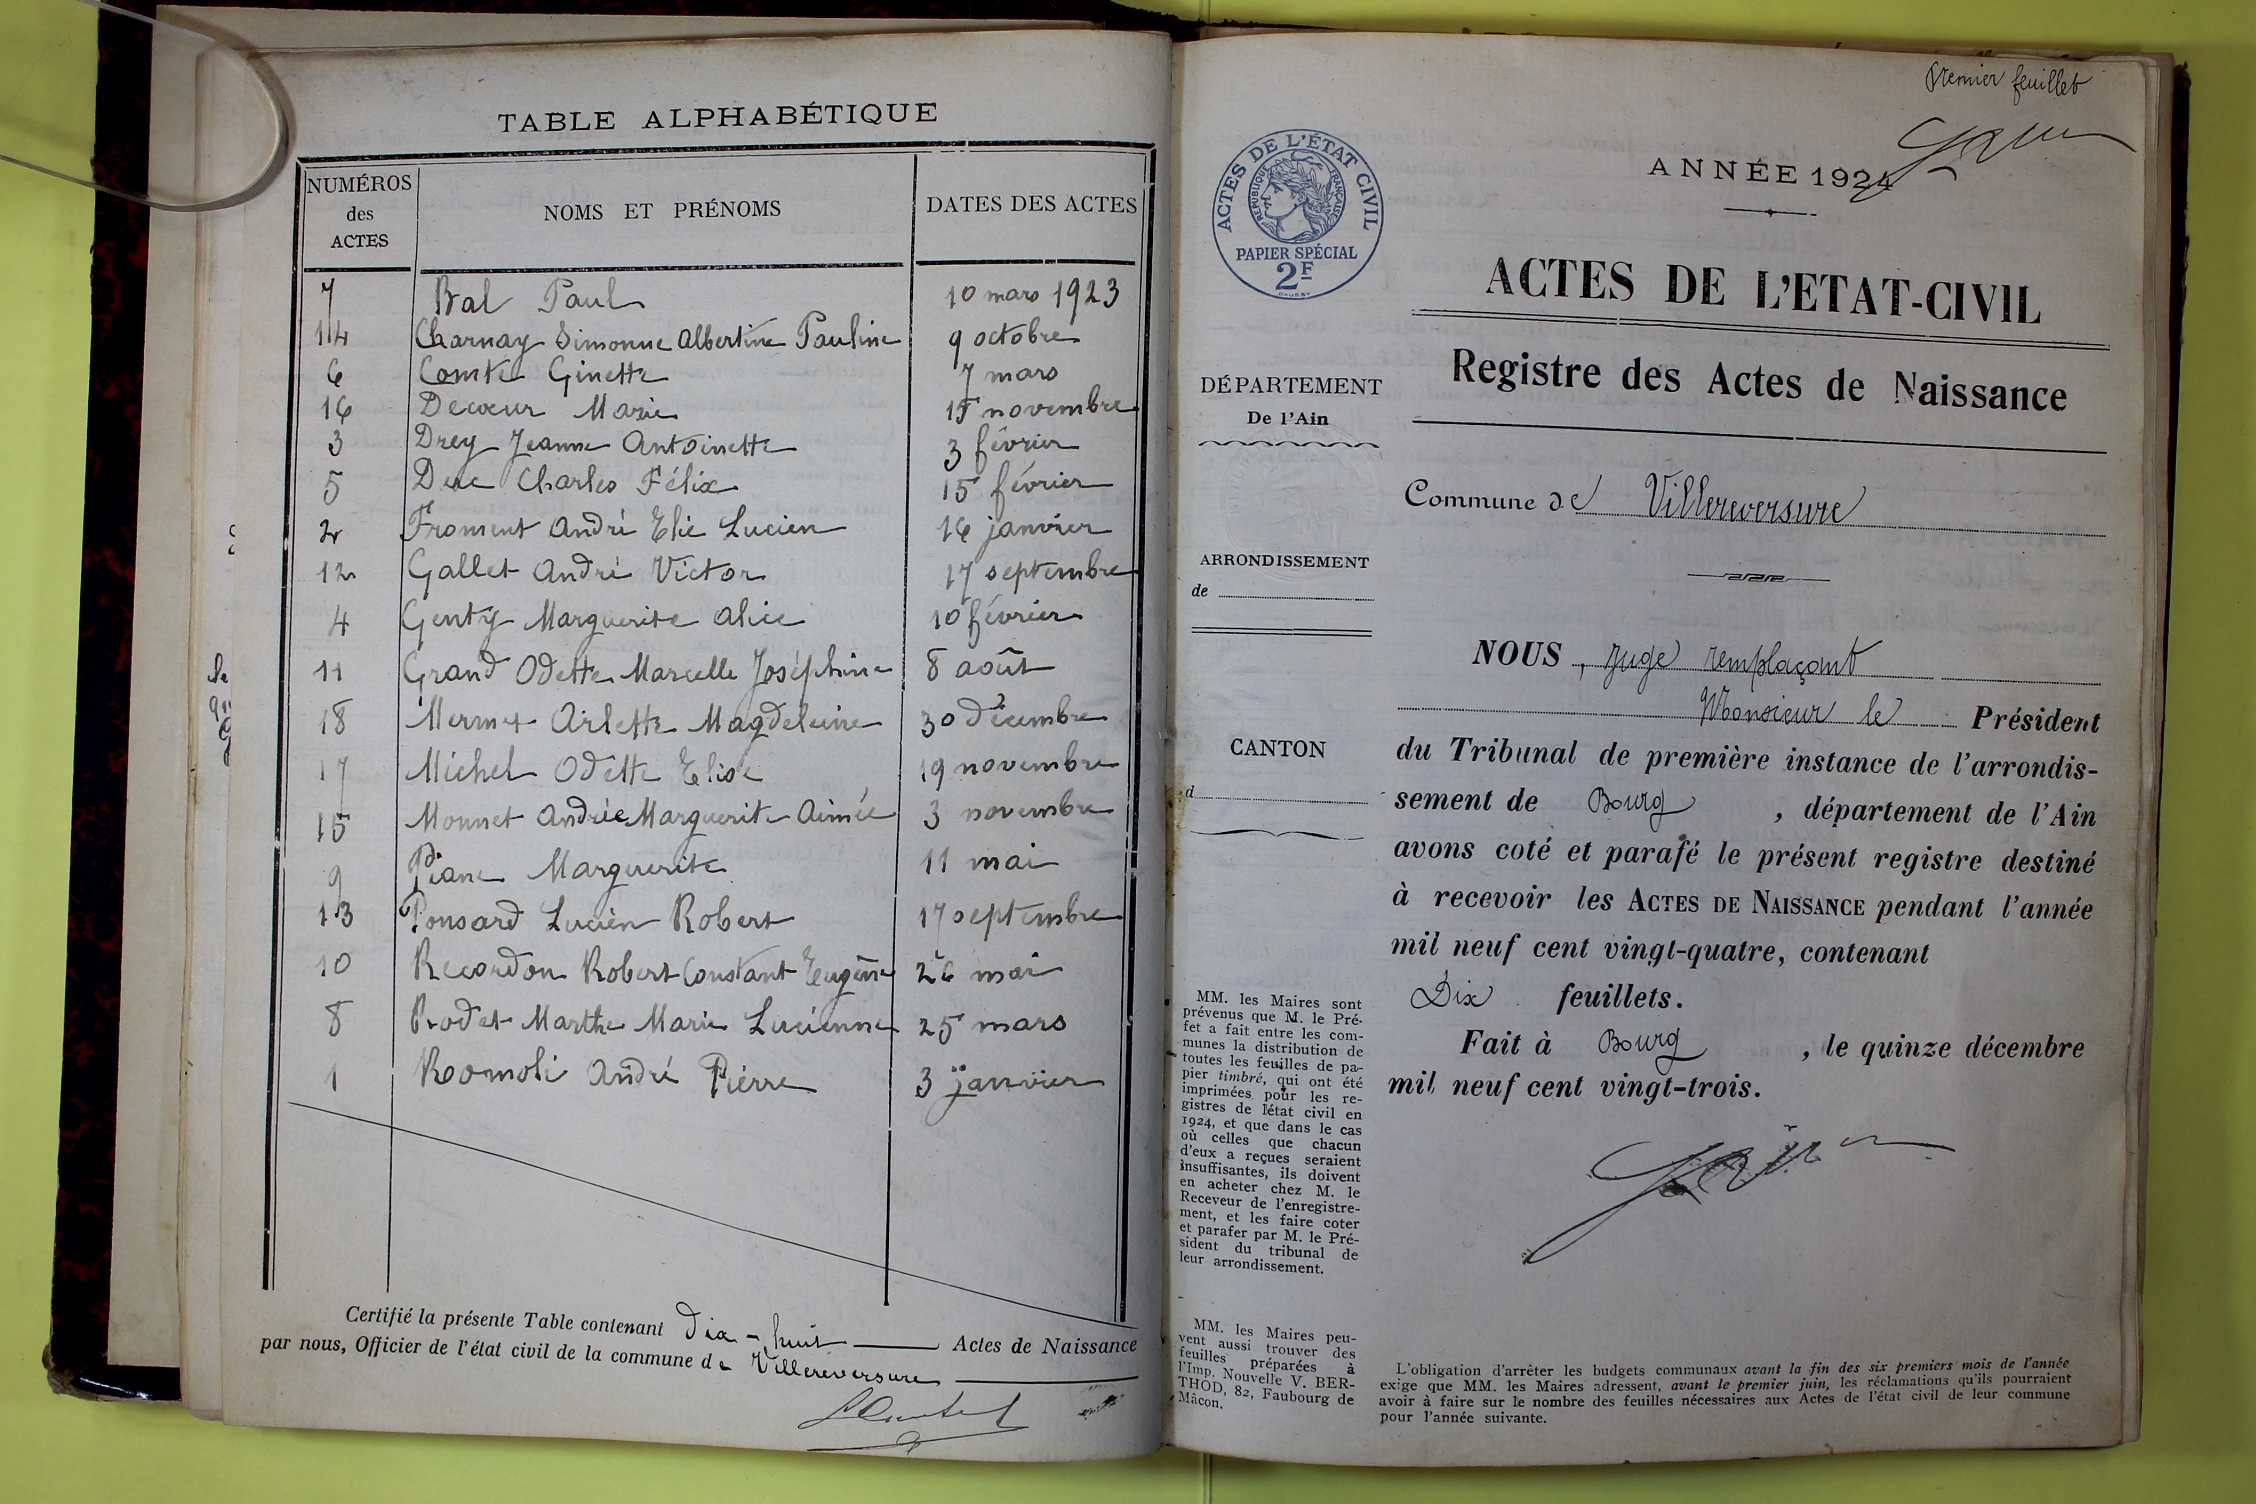 TABLE ALPHABÉTIQUE
NUMÉROS des ACTES NOMS ET PRÉNOMS DATES DES ACTES
7 Bal Paul 10 mars 1923
14 Charnay Simonne Albertine Pauline 9 octobre
6 Comte Ginette 7 mars
16 Decœur Marie 15 novembre
3 Drey Jeanne Antoinette 3 février
5 Duc Charles Félix 15 février
2 Froment André Elie Lucien 16 janvier
12 Gallet André Victor 17 septembre
4 Genty Marguerite Alice 10 février
11 Grand Odette Marcelle Joséphine 8 août
18 Mermet Arlette Magdeleine 30 décembre
17 Michel Odette Elise 19 novembre
15 Monnet Andrée Marguerite Aimée 3 novembre
9 Piane Marguerite 11 mai
13 Ponsard Lucien Robert 17 septembre
10 Recordon Robert Constant Eugène 26 mai
8 Rodet Marthe Marie Lucienne 25 mars
1 Romoli André Pierre 3 janvier
Certifié la présente Table contenant dix-huit Actes de Naissance
par nous, Officier de l'état civil de la commune de Villereversure
Premier feuillet
ANNÉE 1924
ACTES DE L'ÉTAT CIVIL
RÉPUBLIQUE FRANÇAISE
PAPIER SPÉCIAL
2F
ACTES DE L'ETAT-CIVIL
Registre des Actes de Naissance
DÉPARTEMENT
De l'Ain
Commune de Villereversure
ARRONDISSEMENT
de
CANTON
d
NOUS, Juge remplaçant
Monsieur le Président
du Tribunal de première instance de l'arrondis-
sement de Bourg, département de l'Ain
avons coté et parafé le présent registre destiné
à recevoir les ACTES DE NAISSANCE pendant l'année
mil neuf cent vingt-quatre, contenant
Dix feuillets.
Fait à Bourg, le quinze décembre
mil neuf cent vingt-trois.
MM. les Maires sont
prévenus que M. le Pré-
fet a fait entre les com-
munes la distribution de
toutes les feuilles de pa-
pier timbré, qui ont été
imprimées pour les re-
gistres de l'état civil en
1924, et que dans le cas
où celles que chacun
d'eux a reçues seraient
insuffisantes, ils doivent
en acheter chez M. le
Receveur de l'enregistre-
ment, et les faire coter
et parafer par M. le Pré-
sident du tribunal de
leur arrondissement.
MM. les Maires peu-
vent aussi trouver des
feuilles préparées à
l'Imp. Nouvelle V. BER-
THOD, 82, Faubourg de
Mâcon.
L'obligation d'arrêter les budgets communaux avant la fin des six premiers mois de l'année
exige que MM. les Maires adressent, avant le premier juin, les réclamations qu'ils pourraient
avoir à faire sur le nombre des feuilles nécessaires aux Actes de l'état civil de leur commune
pour l'année suivante.